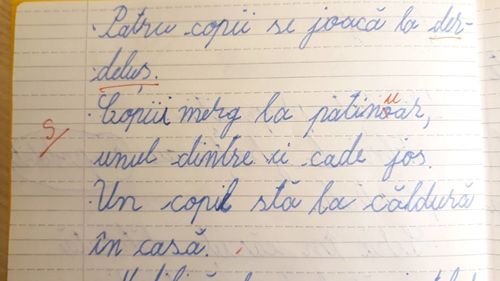 ·Patru copii se joacă la der-
deluș.
·Copiii merg la patinoar,
unul dintre ei cade jos.
·Un copil stă la căldură
în casă.